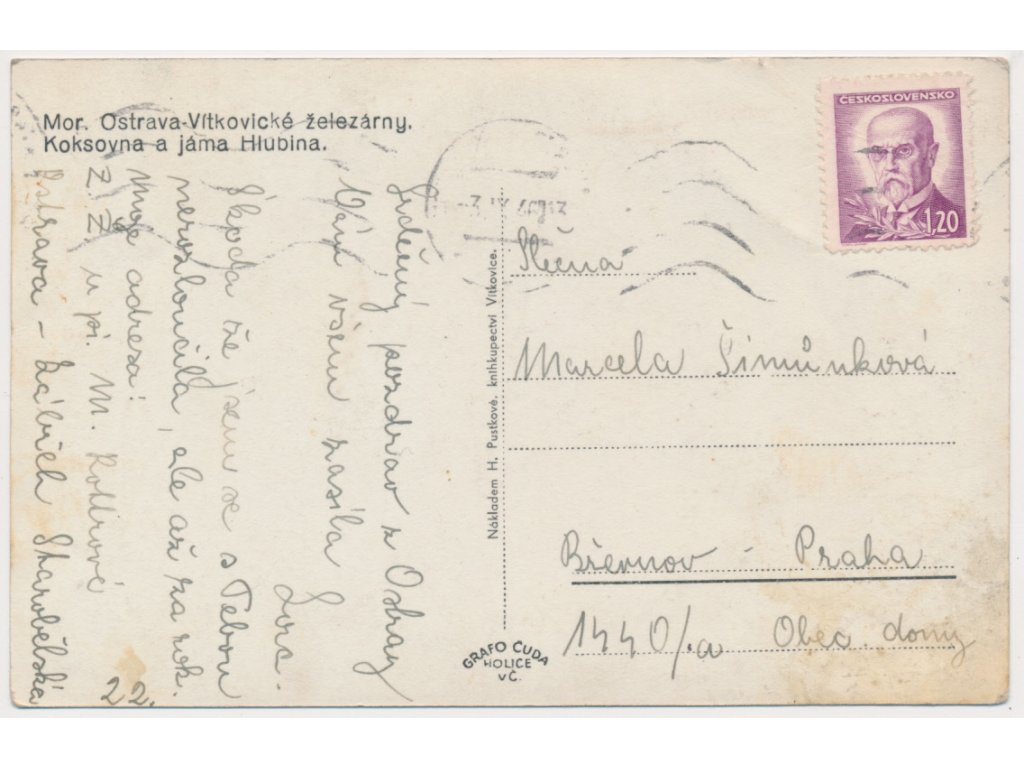 Mor. Ostrava-Vítkovické železárny.
Koksovna a jáma Hlubina.
ČESKOSLOVENSKO
1,20
Srdečný pozdrav z Ostravy
Vám všem zasílá
Škoda že jsem se s Tebou
nerozloučila, ale až za rok.
Moje adresa:
Z. Ž. u pí. M.
Ostrava - Zábřeh Starobělská
22.
Nákladem H. Pustkové, knihkupectví Vítkovice.
Slečna
Marcela Šimůnková
Břevnov - Praha
1440/a Obec. domy
GRAFO ČUDA
HOLICE
V Č.